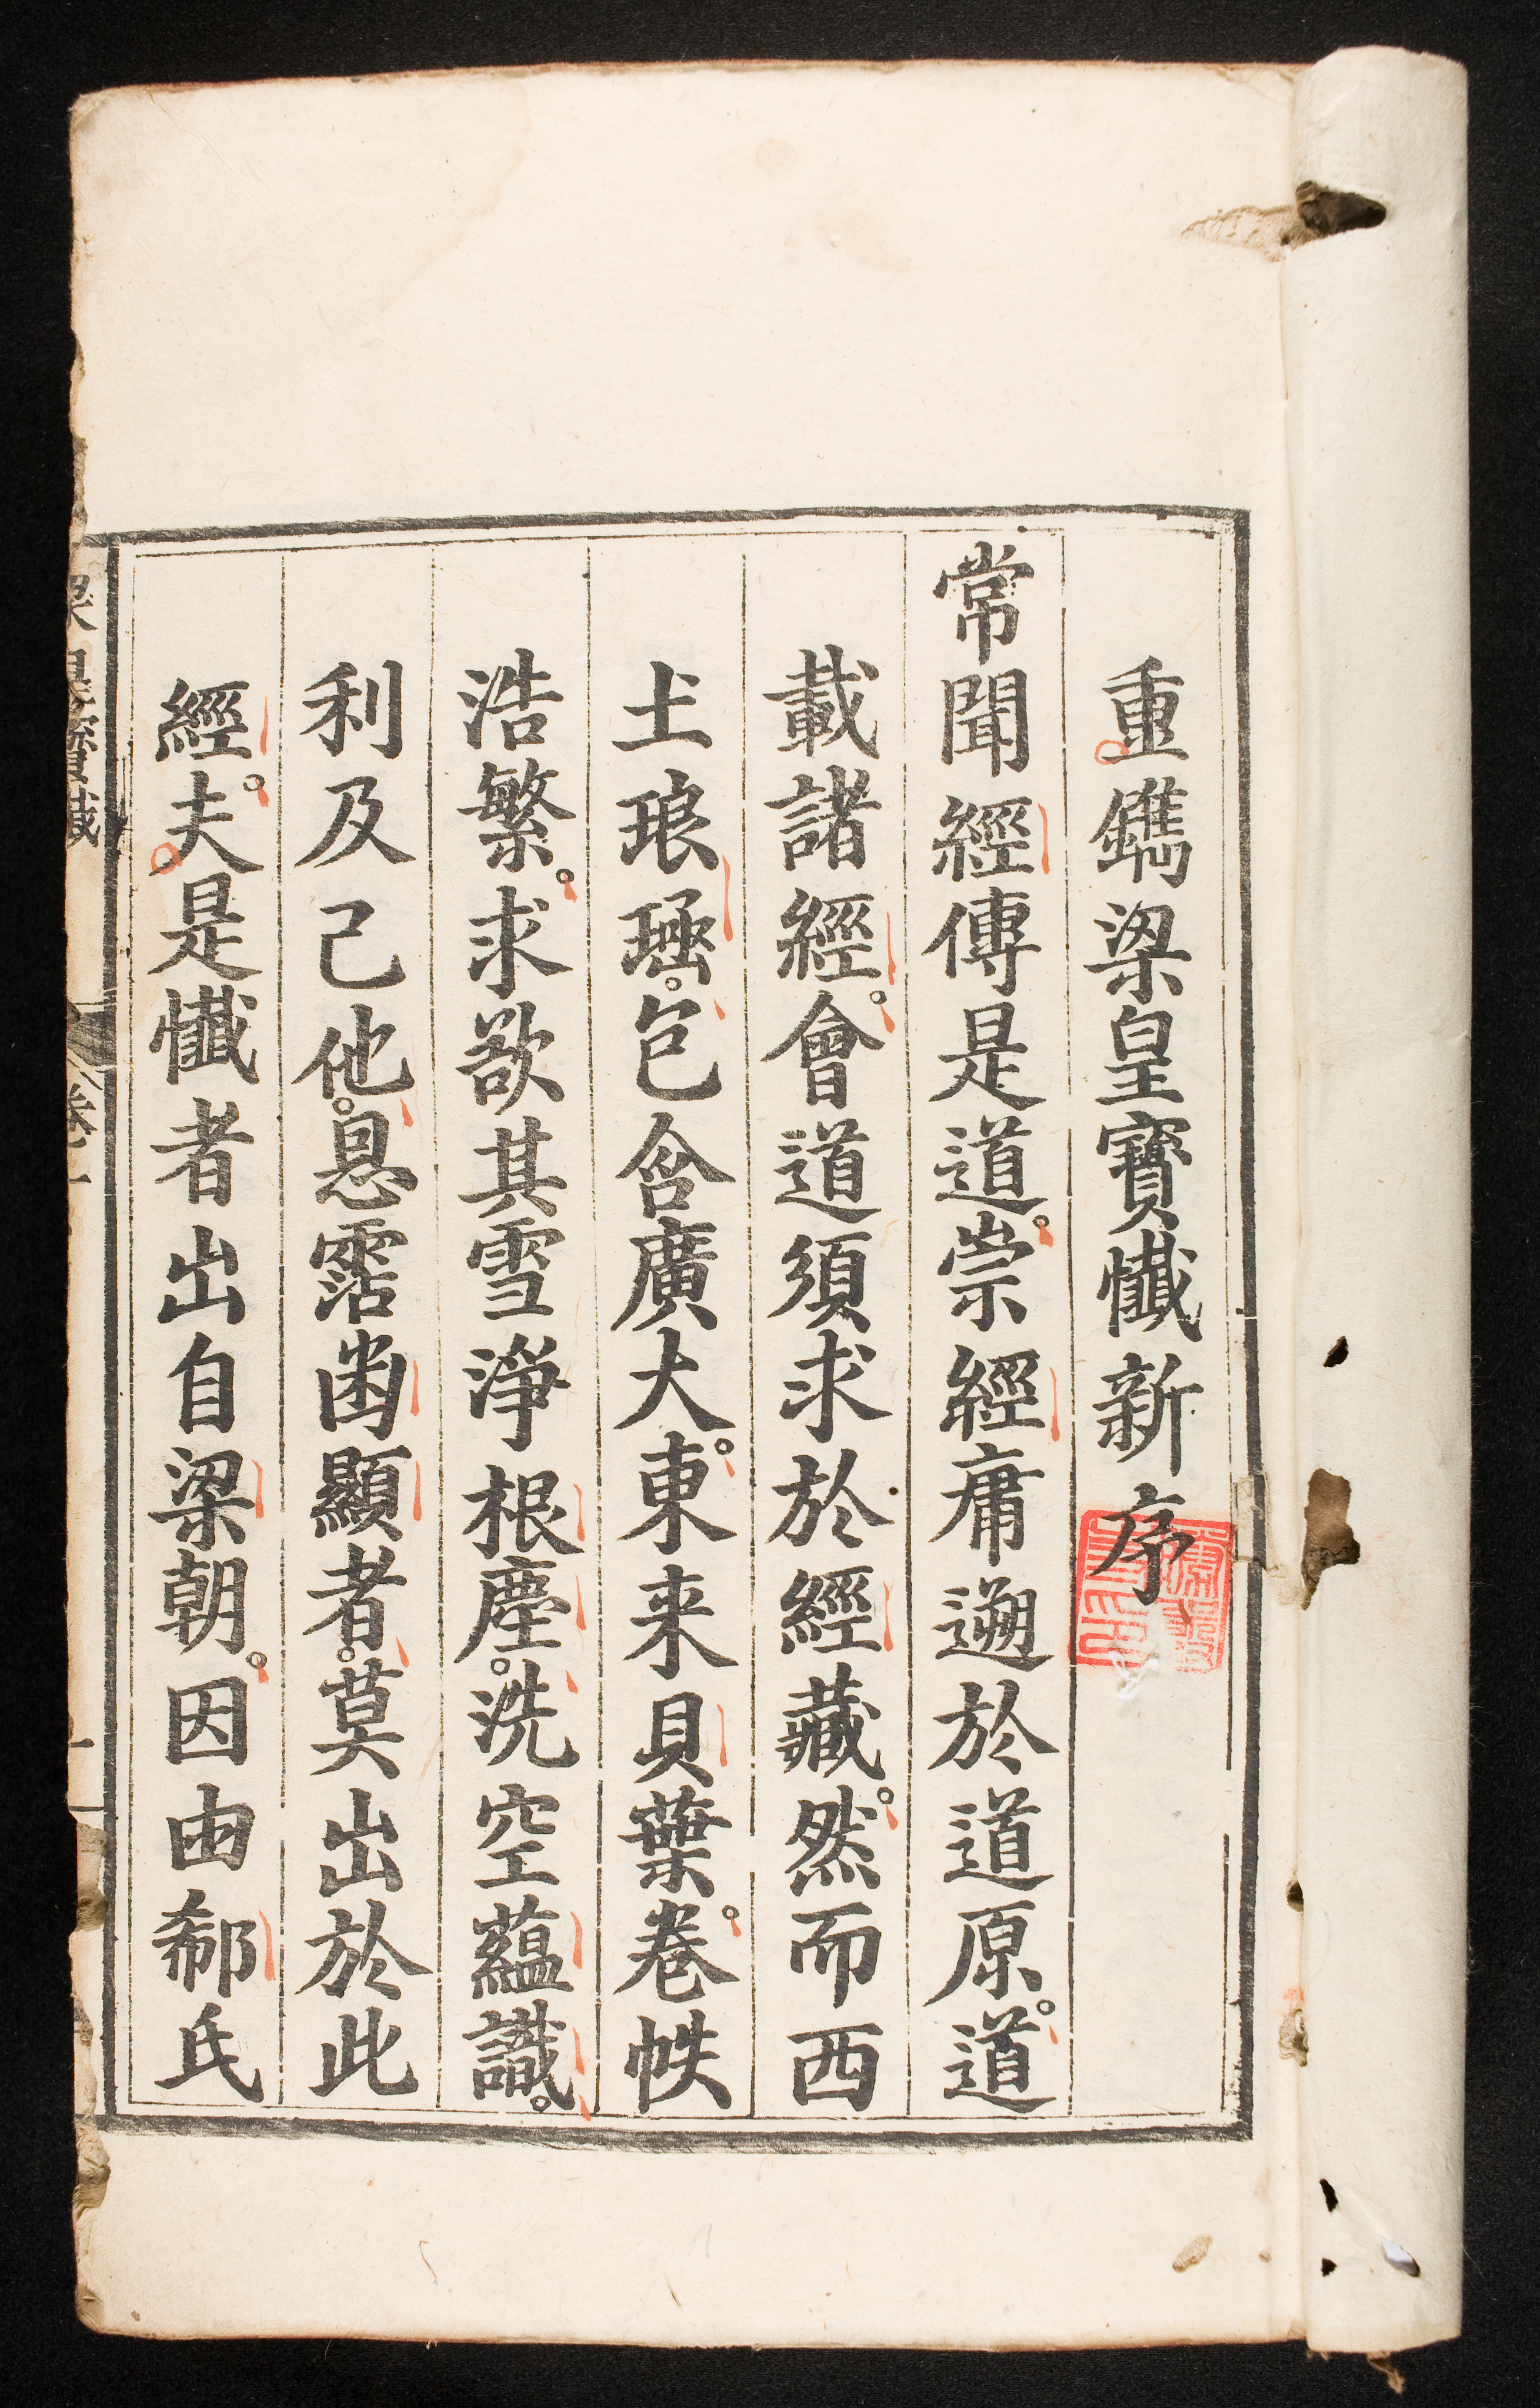 重鐫梁皇寶懺新序
常聞經傳是道。崇經庸遡於道原。道
載諸經。會道須求於經藏。然而西
土琅。包含廣大。東来貝葉。卷帙
浩繁。求欲其雪淨根塵。洗空蘊識。
利及己他。恩霑幽顯者。莫出於此
經。夫是懺者出自梁朝。因由郗氏
梁皇寶懺 卷一 一